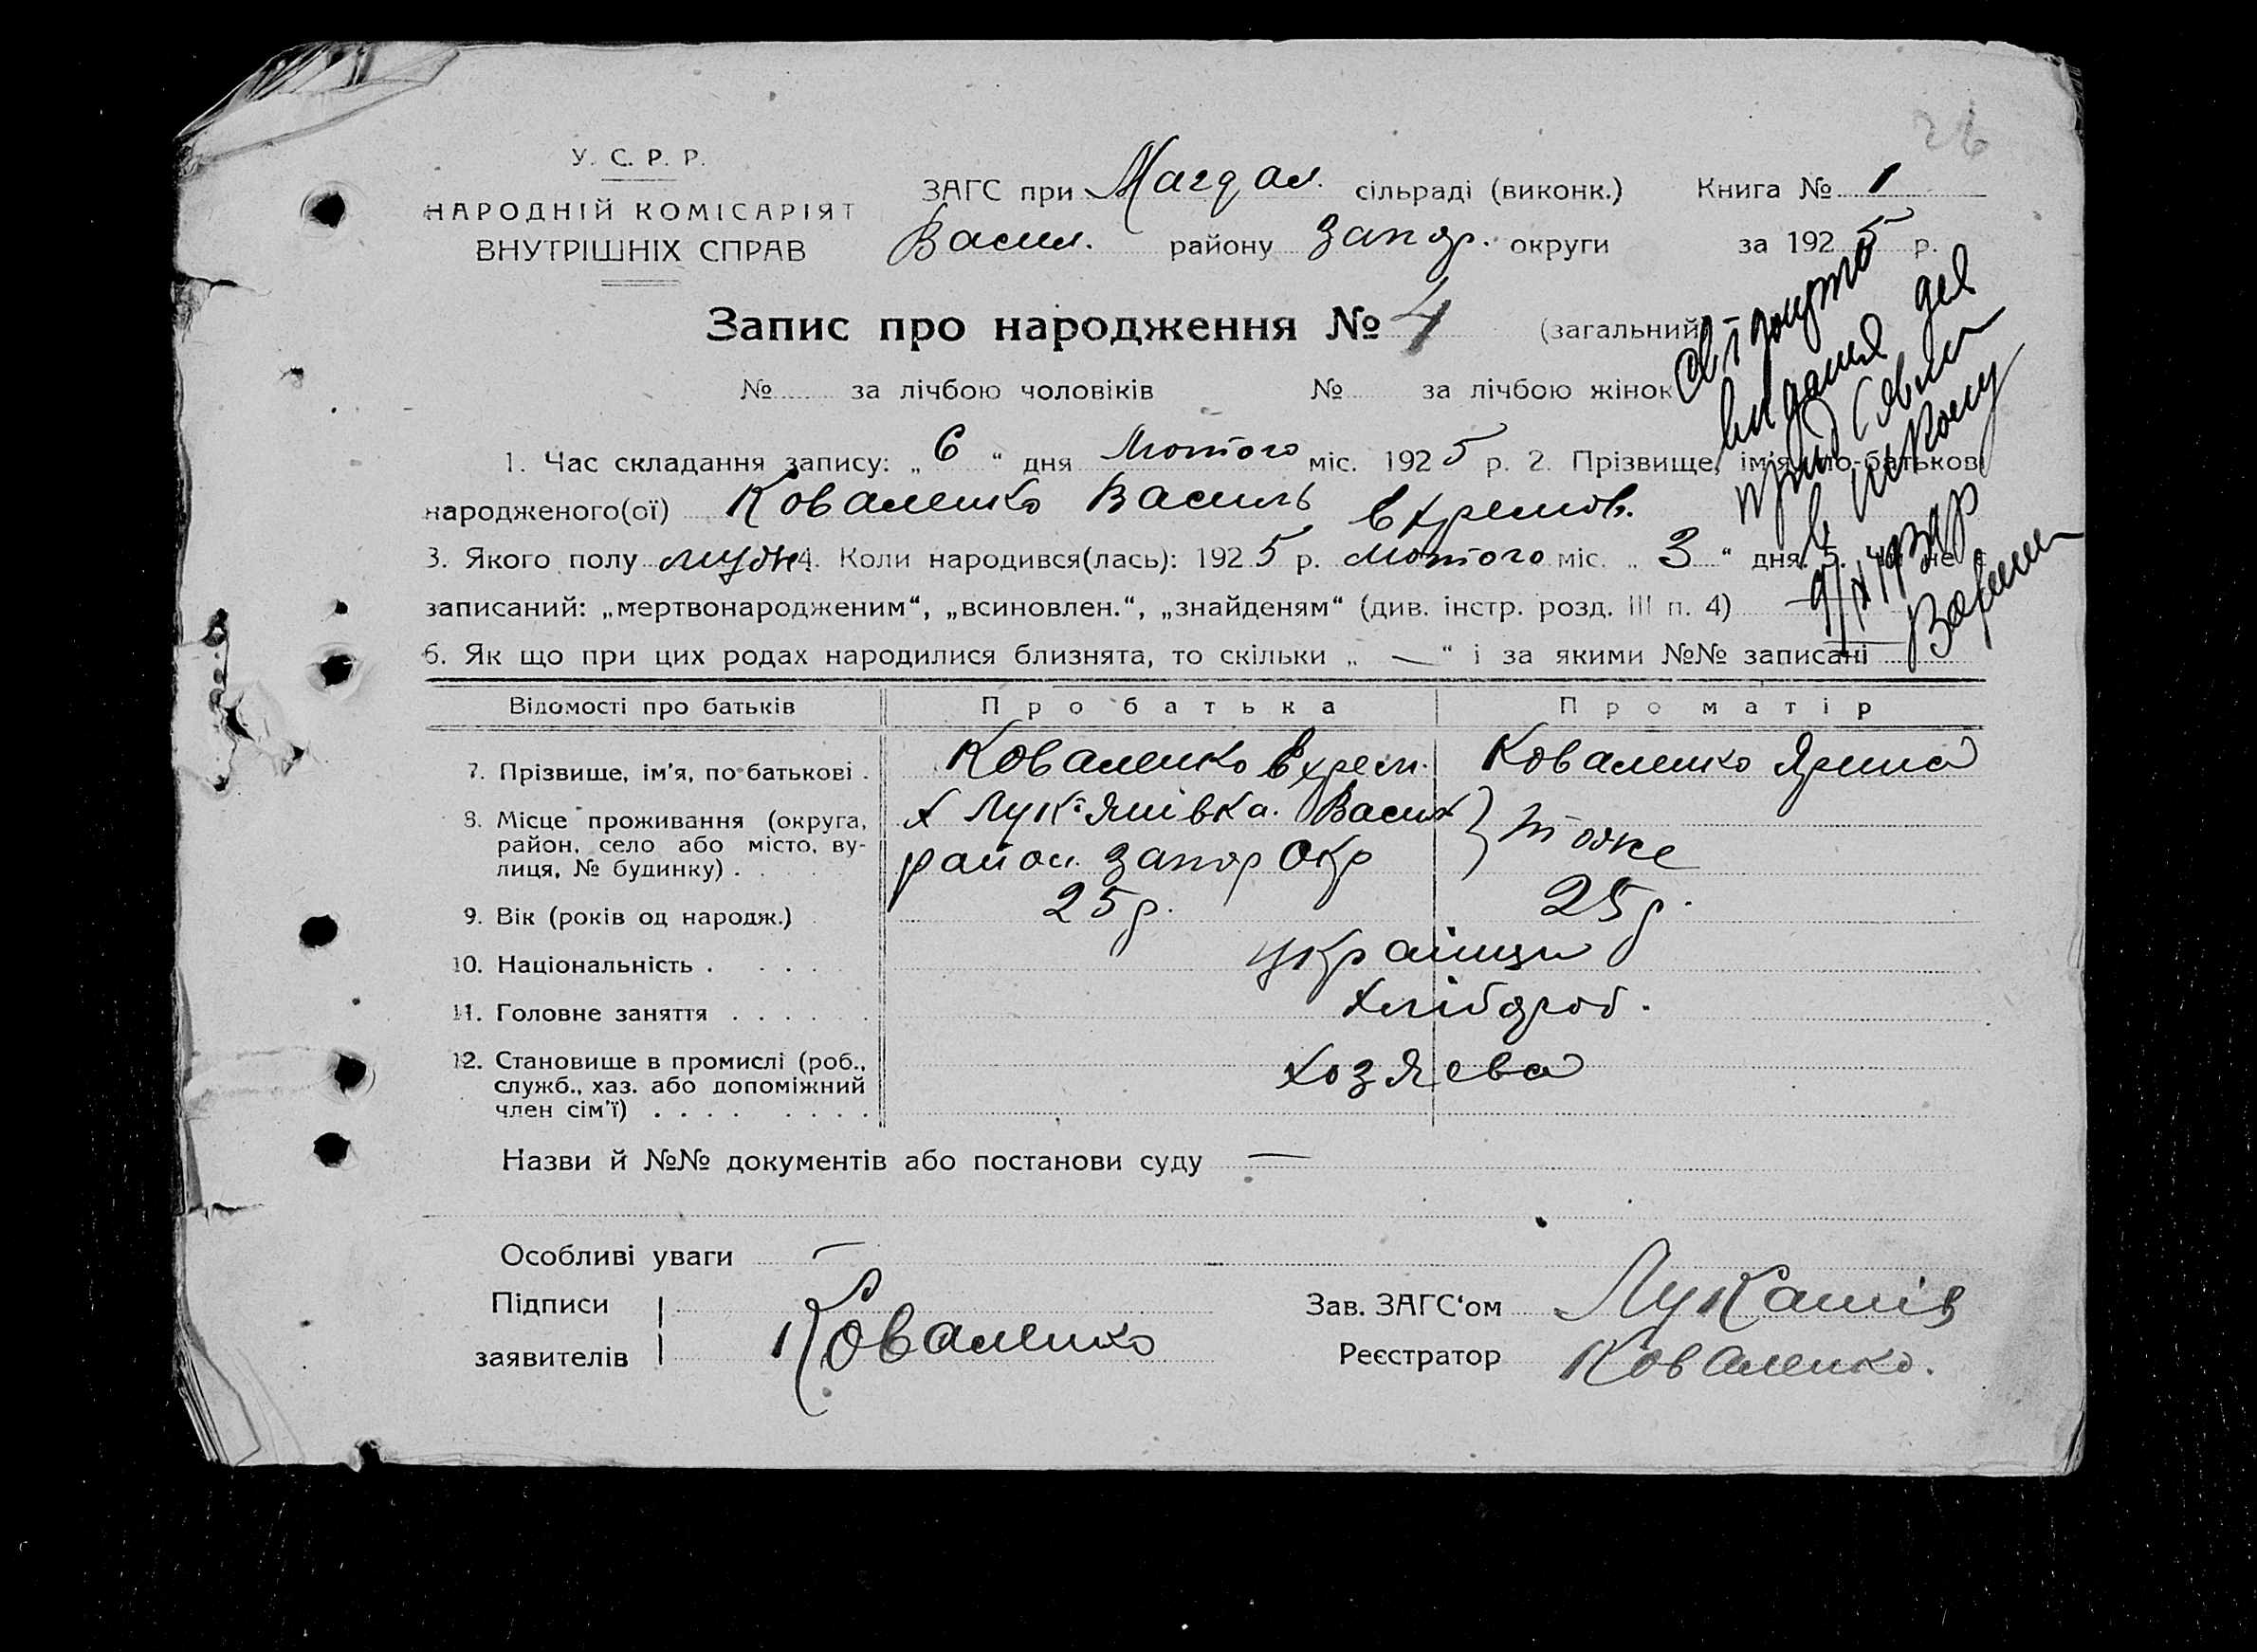 26
У. С. Р. Р.
НАРОДНІЙ КОМІСАРІЯТ
ВНУТРІШНІХ СПРАВ
ЗАГС при Магдал. сільраді (виконк.) Книга № 1
Васил. району Запор. округи за 1925 р.
Запис про народження № 4 (загальний
№ за лічбою чоловіків № за лічбою жінок
1. Час складання запису: „ 6 “ дня Лютого міс. 1925 р. 2. Прізвище, ім'я, по-батькові
народженого(ої) Коваленко Василь Єхремов.
3. Якого полу муж. 4. Коли народився(лась): 1925 р. Лютого міс. „ 3 “ дня. 5. не
записаний: „мертвонародженим“, „всиновлен.“, „знайденям“ (див. інстр. розд. III п. 4)
6. Як що при цих родах народилися близнята, то скільки „ — “ і за якими №№ записані
Відомості про батьків Про батька Про матір
7. Прізвище, ім'я, по батькові . Коваленко Єхрем. Коваленко Ярина
8. Місце проживання (округа, район, село або місто, вулиця, № будинку) . х Лук'янівка. Васил район. Запор Окр } тоже
9. Вік (років од народж.) 25 р. 25 р.
10. Національність . українци
11. Головне заняття . хлібороб.
12. Становище в промислі (роб., служб., хаз. або допоміжний член сім'ї) . хозяева
Назви й №№ документів або постанови суду —
Особливі уваги —
Підписи
заявителів Коваленко
Зав. ЗАГС'ом Лукашів
Реєстратор Коваленко.